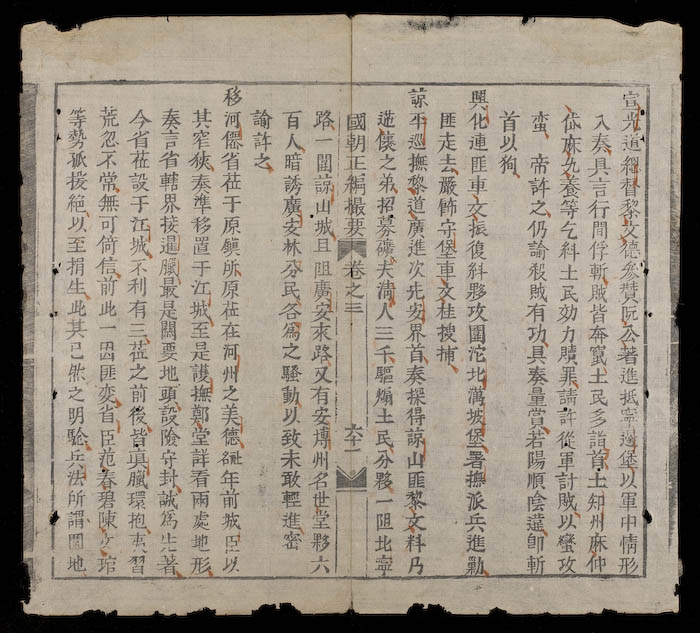 宣光道經督黎文德參贊阮公著進抵寧邊堡以軍中情形
入奏具言行間俘斬賊皆奔竄土民多詣首土知州麻仲
岱麻允養等乞糾土民効力贖罪請許從軍討賊以蠻攻
蠻 帝許之仍諭殺賊有功具奏量賞若陽順陰違卽斬
首以狥
興化連匪車文振復糾夥攻圍沱北灡坡堡署撫派兵進勦
匪走去嚴飭守堡車文桂搜捕
諒平巡撫黎道廣進次先安界首奏探得諒山匪黎文料乃
逆儴之弟招募礦夫淸人三千驅煽土民分夥一阻北寧
國朝正編撮要 卷之三 六十一
路一圍諒山城且阻廣安來路又有安博州名世堂夥六
百人暗誘廣安林分民各爲之騷動以致未敢輕進密
諭許之
移河僊省莅于原鎭所原莅在河州之美德 年前城臣以
其窄狹奏準移置于江城至是護撫鄭堂詳看兩處地形
奏言省轄界接暹臘最是關要地頭設險守封誠爲先著
今省莅設于江城不利有三莅之前後皆眞臘環抱夷習
荒忽不常無可倚信前此一因匪變省臣范春碧陳文琯
等勢孤援絶以至捐生此其已然之明驗兵法所謂圍地